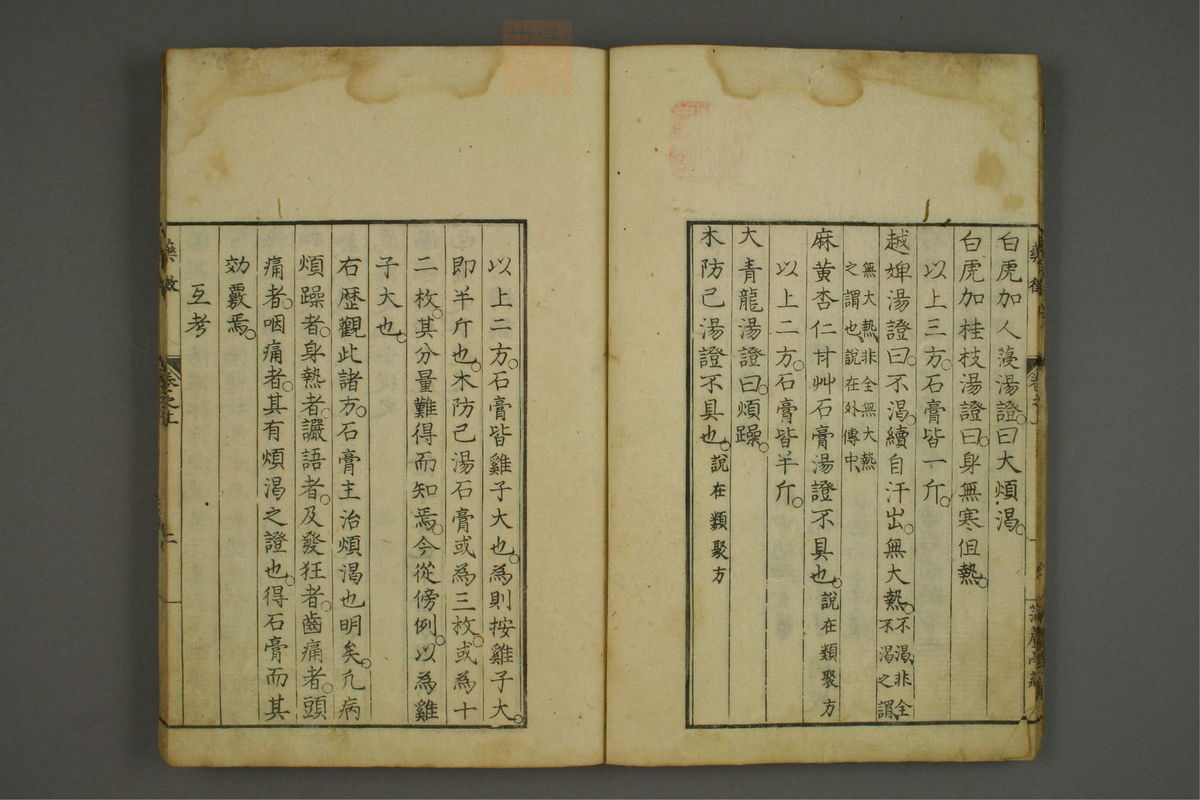 白虎加人薓湯證曰大煩渴
白虎加桂枝湯證曰身無寒但熱
以上三方石膏皆一斤
越婢湯證曰不渴續自汗出無大熱不渴非全不渴之謂
無大熱非全無大熱之謂也說在外傳中
麻黄杏仁甘艸石膏湯證不具也說在類聚方
以上二方石膏皆半斤
大青龍湯證曰煩躁
木防已湯證不具也說在類聚方
以上二方石膏皆雞子大也為則按雞子大
即半斤也木防已湯石膏或為三枚或為十
二枚其分量難得而知焉今從傍例以為雞
子大也
右歴觀此諸方石膏主治煩渴也明矣凡病
煩躁者身熱者讝語者及發狂者齒痛者頭
痛者咽痛者其有煩渴之證也得石膏而其
効覈焉
互考
藥徴
卷之上